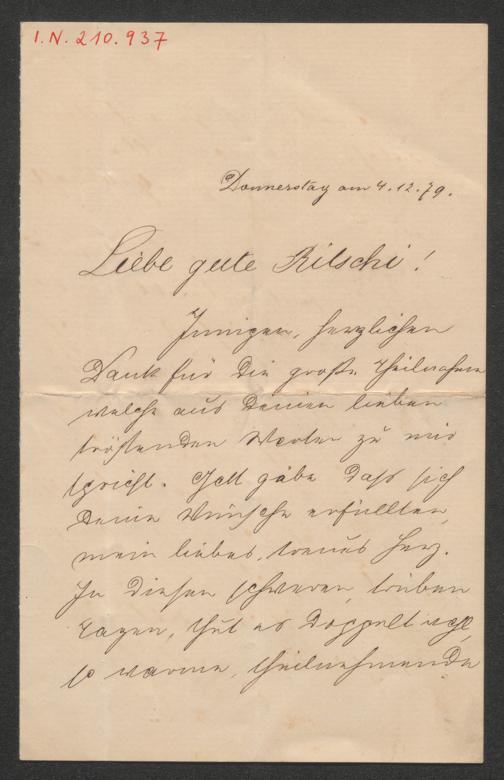 I.N. 210.937
Donnerstag am 4.12.79.
Liebe gute Ritschi!
Innigen, herzlichen
Dank für die große Theilnahme
welche aus Deinen lieben
tröstenden Worten zu mir
spricht. Gott gäbe daß sich
Deine Wünsche erfüllten,
mein liebes, treues Herz.
In diesen schweren, trüben
Tagen, thut es doppelt wohl,
so warme, theilnehmende